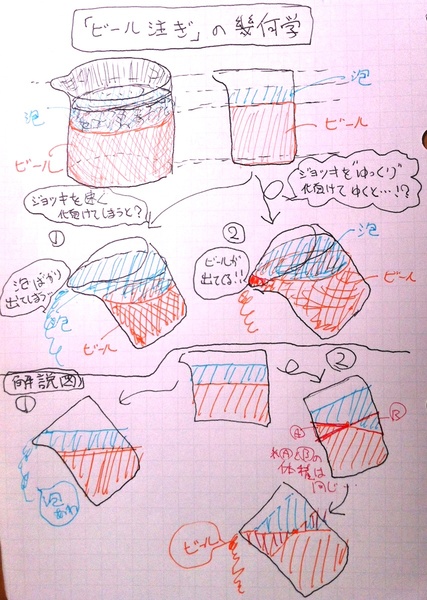 「ビール注ぎ」の幾何学
泡
泡
ビール
ビール
ジョッキを速く
傾けてしまうと?
ジョッキを"ゆっくり"
傾けてゆくと…!?
①
②
泡ばかり
出てしまう…
泡
ビール
ビールが
出てくる!!
泡
ビール
解説図
①
②
泡
あわ
Ⓐ
Ⓑ
※ⒶとⒷの
体積は
同じ…
ビール